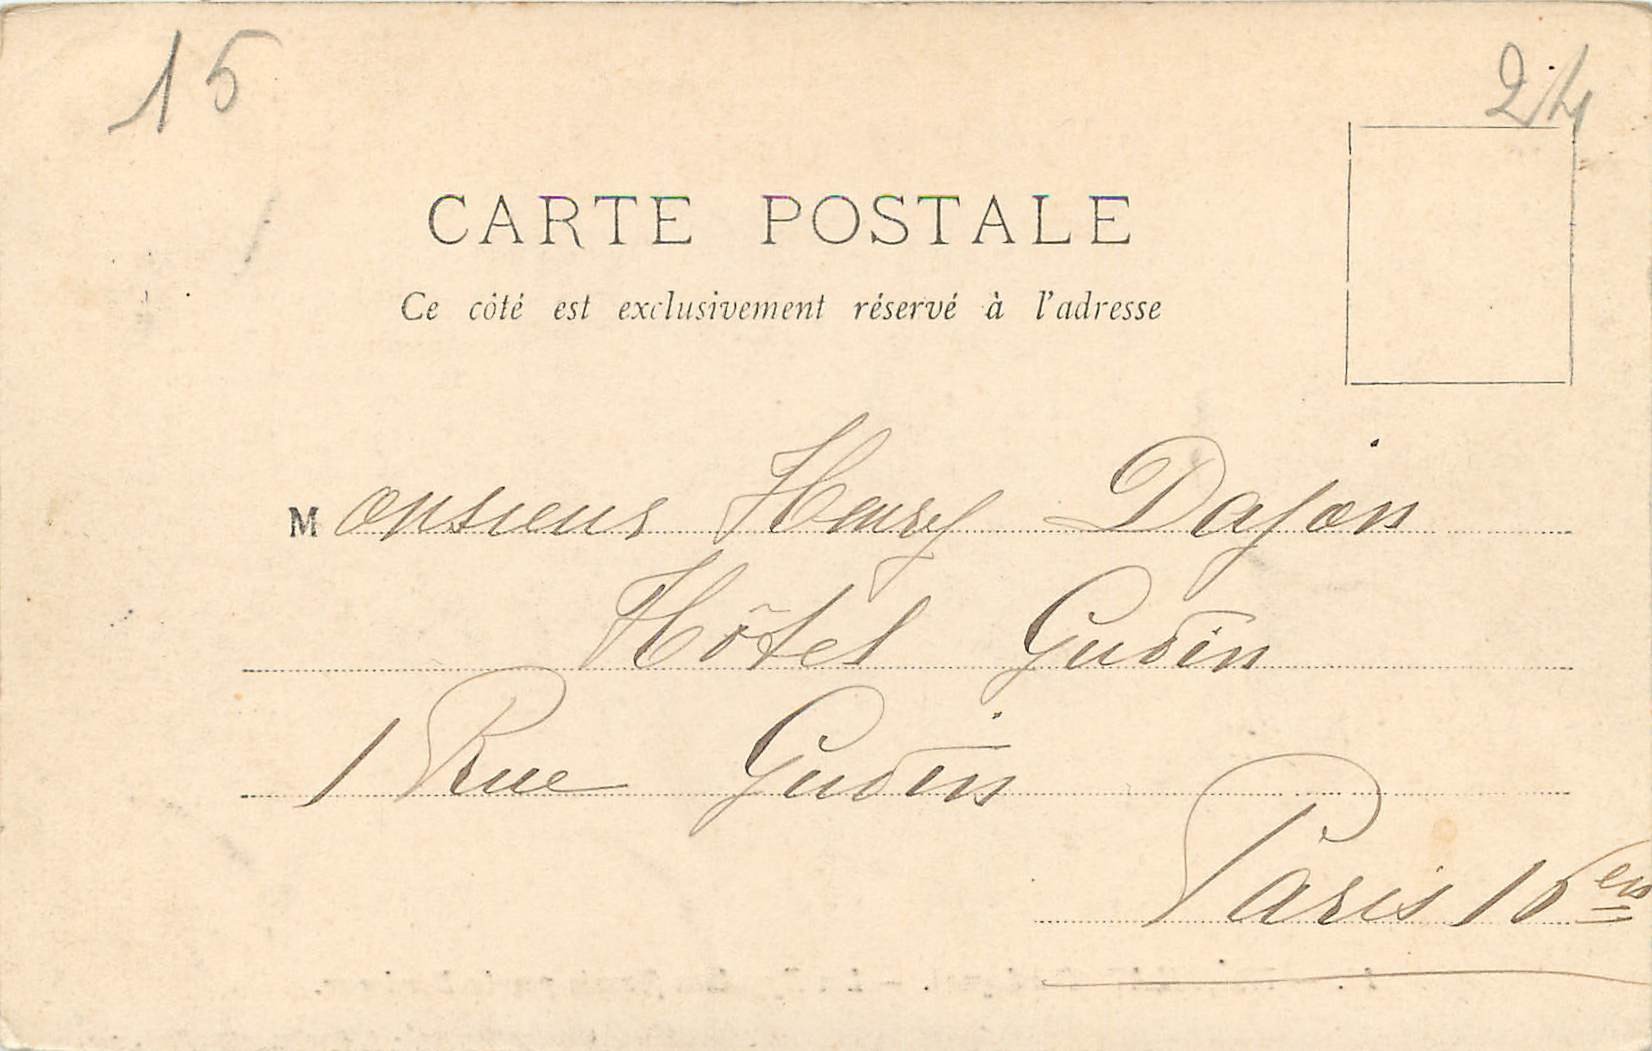 15
24
CARTE POSTALE
Ce côté est exclusivement réservé à l'adresse
Monsieur Henry Dajon
Hôtel Gudin
1 Rue Gudin
Paris 16em